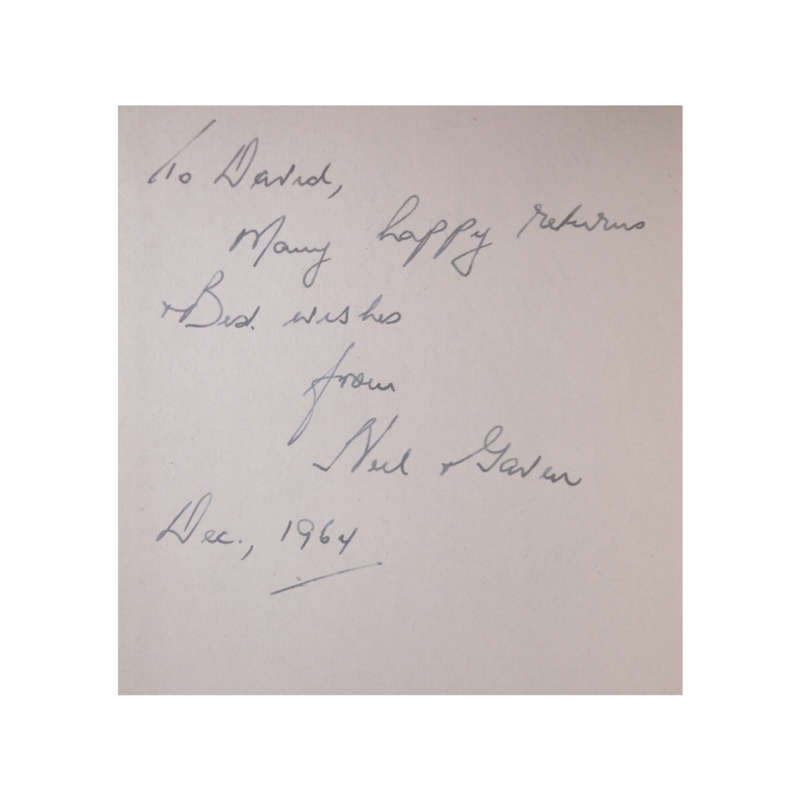 To David,
Many happy returns
+ Best wishes
from
Neil + Gaven
Dec., 1964